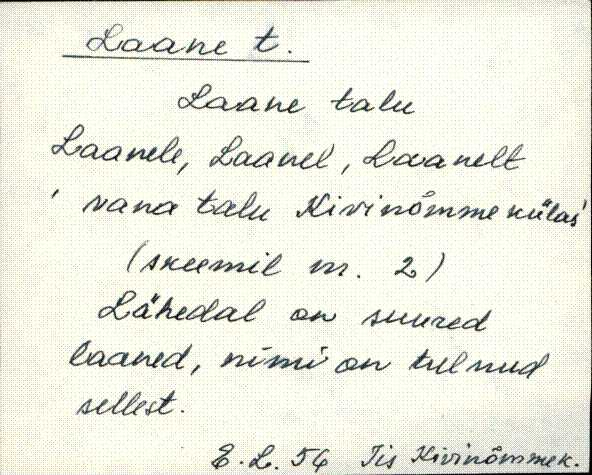 Laane t.
Laane talu
Laanele, Laanel, Laanelt
' vana talu Kivinõmme külas'
(skeemil nr. 2)
Lähedal on suured
laaned, nimi on tulnud
sellest.
E. L. 56 Tis Kivinõmmek.